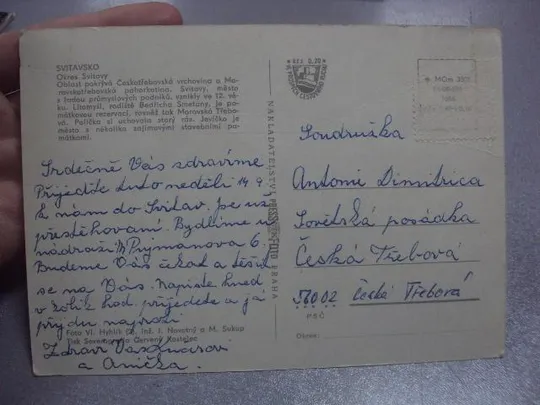 SVITAVSKO
Okres Svitavy
Oblast pokrývá Českotřebovská vrchovina a Mo-
ravskotřebovská pahorkatina. Svitavy, město
s řadou průmyslových podniků, vznikly ve 12. vě-
ku. Litomyšl, rodiště Bedřicha Smetany, je pa-
mátkovou rezervací, rovněž tak Moravská Třebo-
vá. Polička si uchovala starý ráz. Jevíčko je
město s několika zajímavými stavebními pa-
mátkami.
Srdečně Vás zdravíme
Přijeďte tuto neděli 14. 9.
k nám do Svitav. jsme už
přestěhovaní. Bydlíme u
nádraží Pujmanova 6.
Budeme Vás čekat a těšit
se na Vás. Napište hned
v kolik hod. přijedete a já
přijdu naproti
Foto Vl. Hyhlík (3), Inž. J. Novotný a M. Sukup
Tisk Severografia Červený Kostelec
Zdraví
a Anička.
NAKLADATELSTVÍ PRESSFOTO PRAHA
Kčs 0,30
Soudružka
Antonie Dimitrica
Sovětská posádka
Česká Třebová
56002 Česká Třebová
PSČ
Okres: